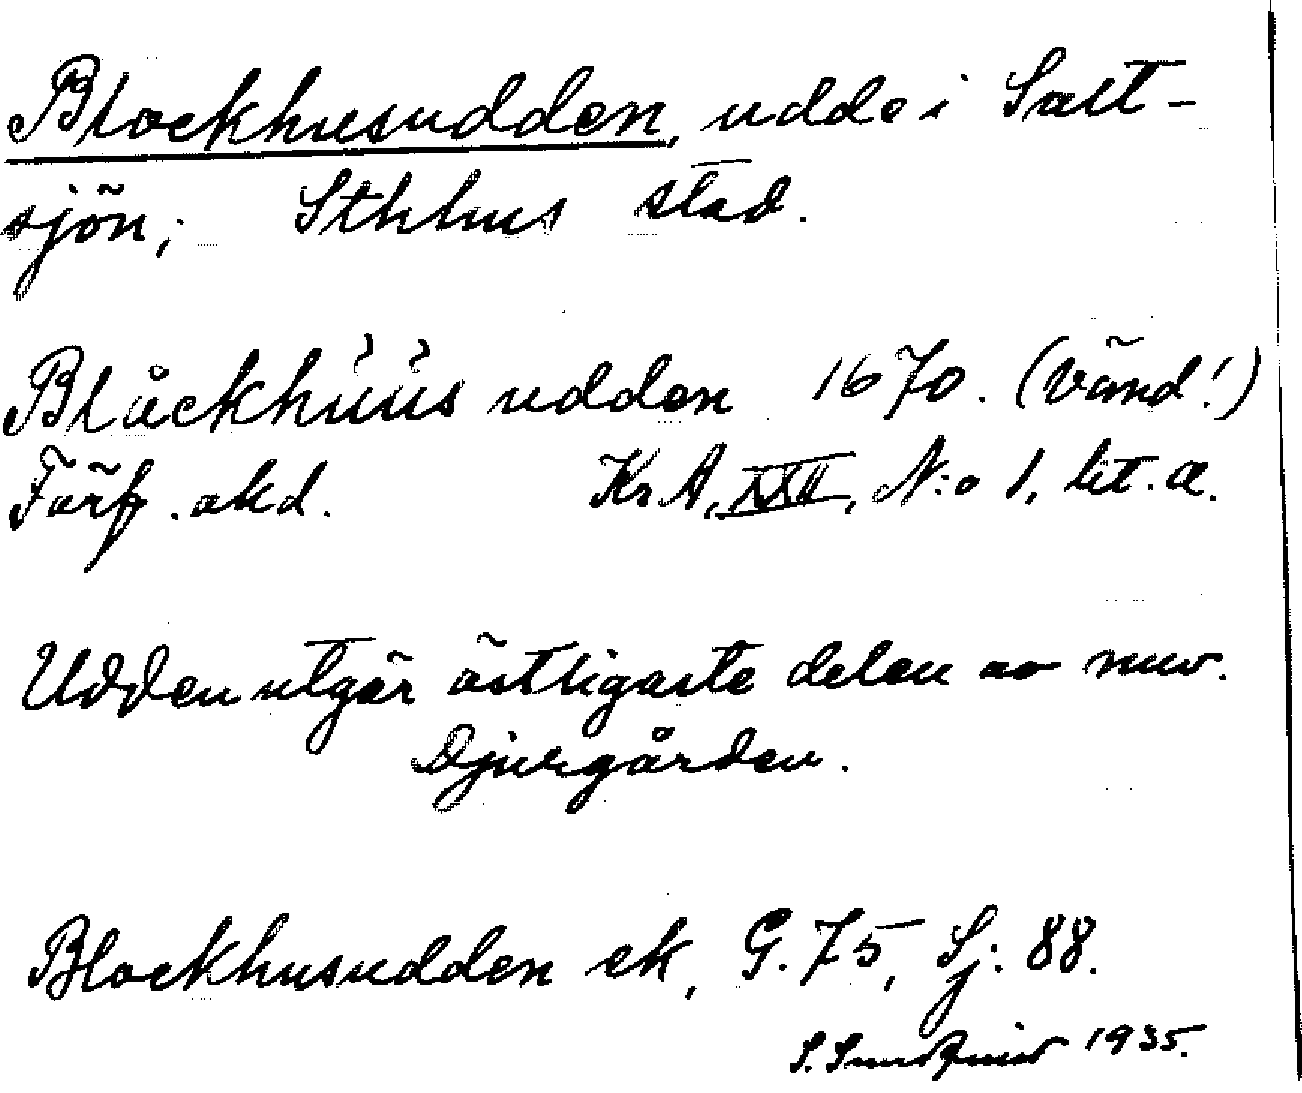 Blockhusudden, udde i Salt-
sjön; Sthlms stad.
Blåckhüüs udden 1670. (Vänd!)
Förf. okd. KrA, XXII, N:o 1, lit. a.
Udden utgör östligaste delen av nuv.
Djurgården.
Blockhusudden ek, G. 75, Sj: 88.
S. Sundquist 1935.